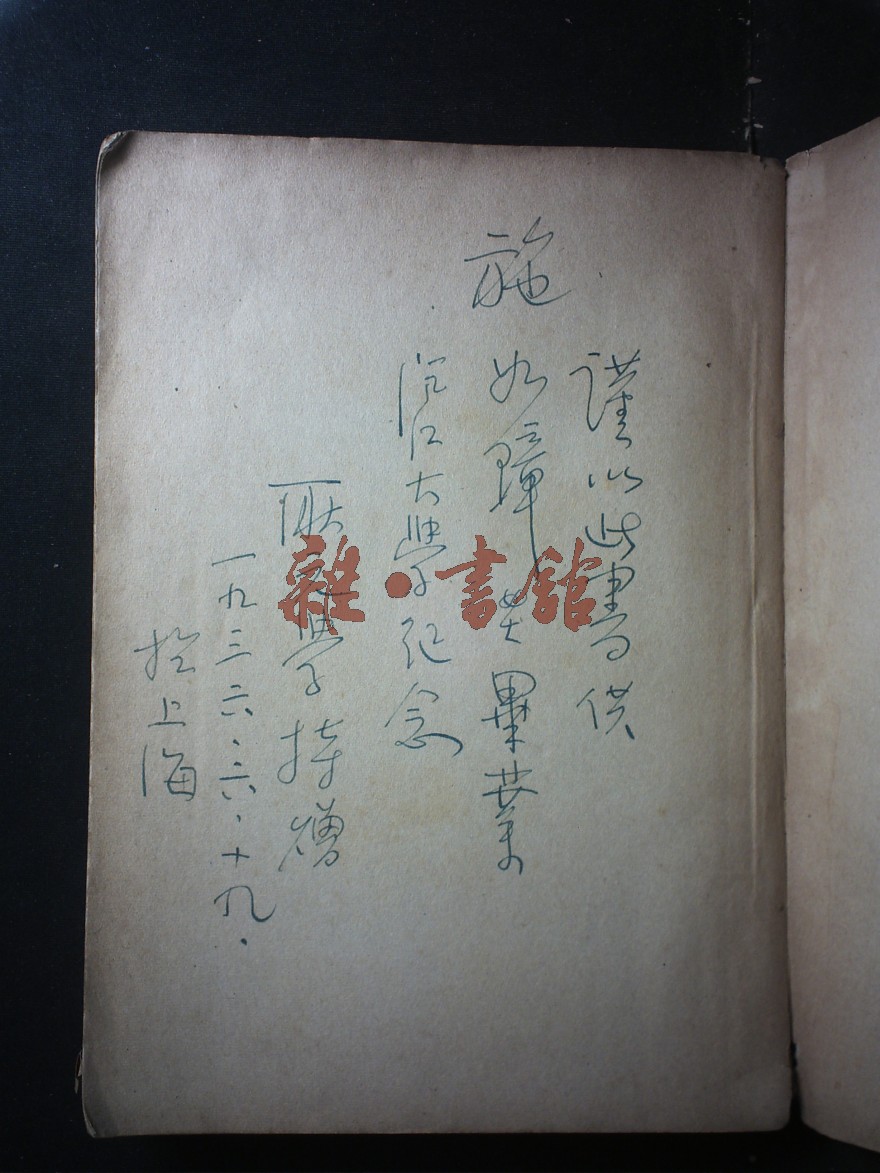 謹以此書供
施如璋女士畢業
滬江大學紀念
學持贈
一九三六、六、十九.
於上海
雜•書館